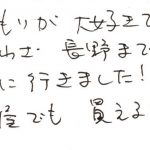 もりが 大好きで
山さ 長野まで
に行きました!
でも 買える